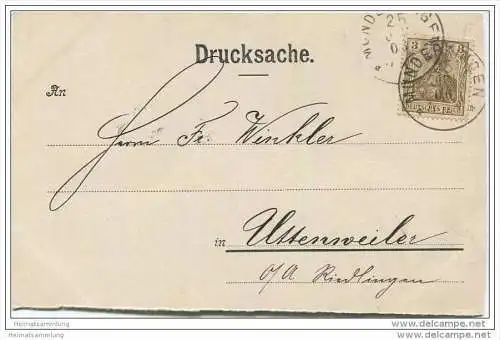 MUNDERKINGEN
25
Drucksache.
3 3
DEUTSCHES REICH
An
Herrn Fr. Winkler
in Uttenweiler
o/A Riedlingen
Heimatsammlung
Heimatsammlung
www.delcampe.net